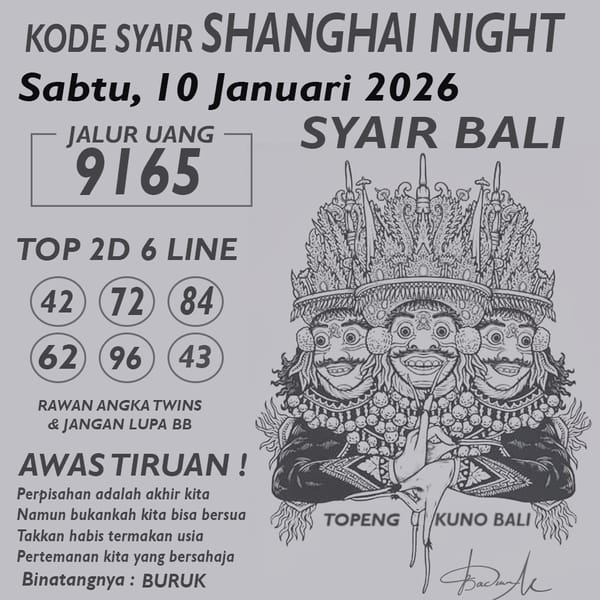 KODE SYAIR SHANGHAI NIGHT
Sabtu, 10 Januari 2026
SYAIR BALI
JALUR UANG
9165
TOP 2D 6 LINE
42 72 84
62 96 43
RAWAN ANGKA TWINS
& JANGAN LUPA BB
AWAS TIRUAN !
Perpisahan adalah akhir kita
Namun bukankah kita bisa bersua
Takkan habis termakan usia
Pertemanan kita yang bersahaja
Binatangnya : BURUK
TOPENG KUNO BALI